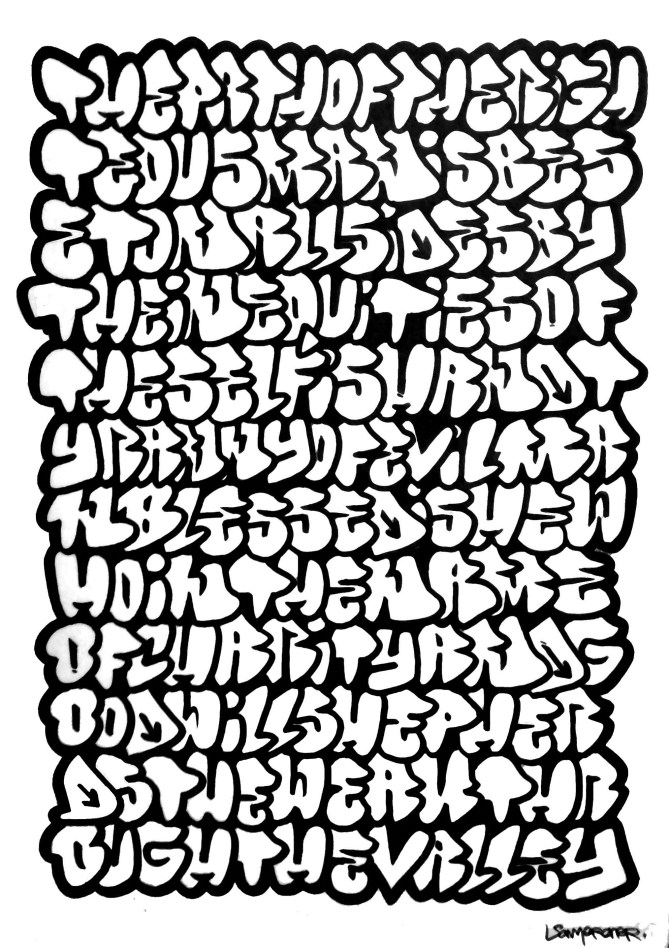 THEPATHOFTHERIGH
TEOUSMANISBES
ETONALLSIDESBY
THEINEQUITIESOF
THESELFISHANDT
YRANNYOFEVILMEA
NBLESSEDISHEW
HOINTHENAME
OFCHARITYANDG
OODWILLSHEPHER
DSTHEWEAKTHR
OUGHTHEVALLEY